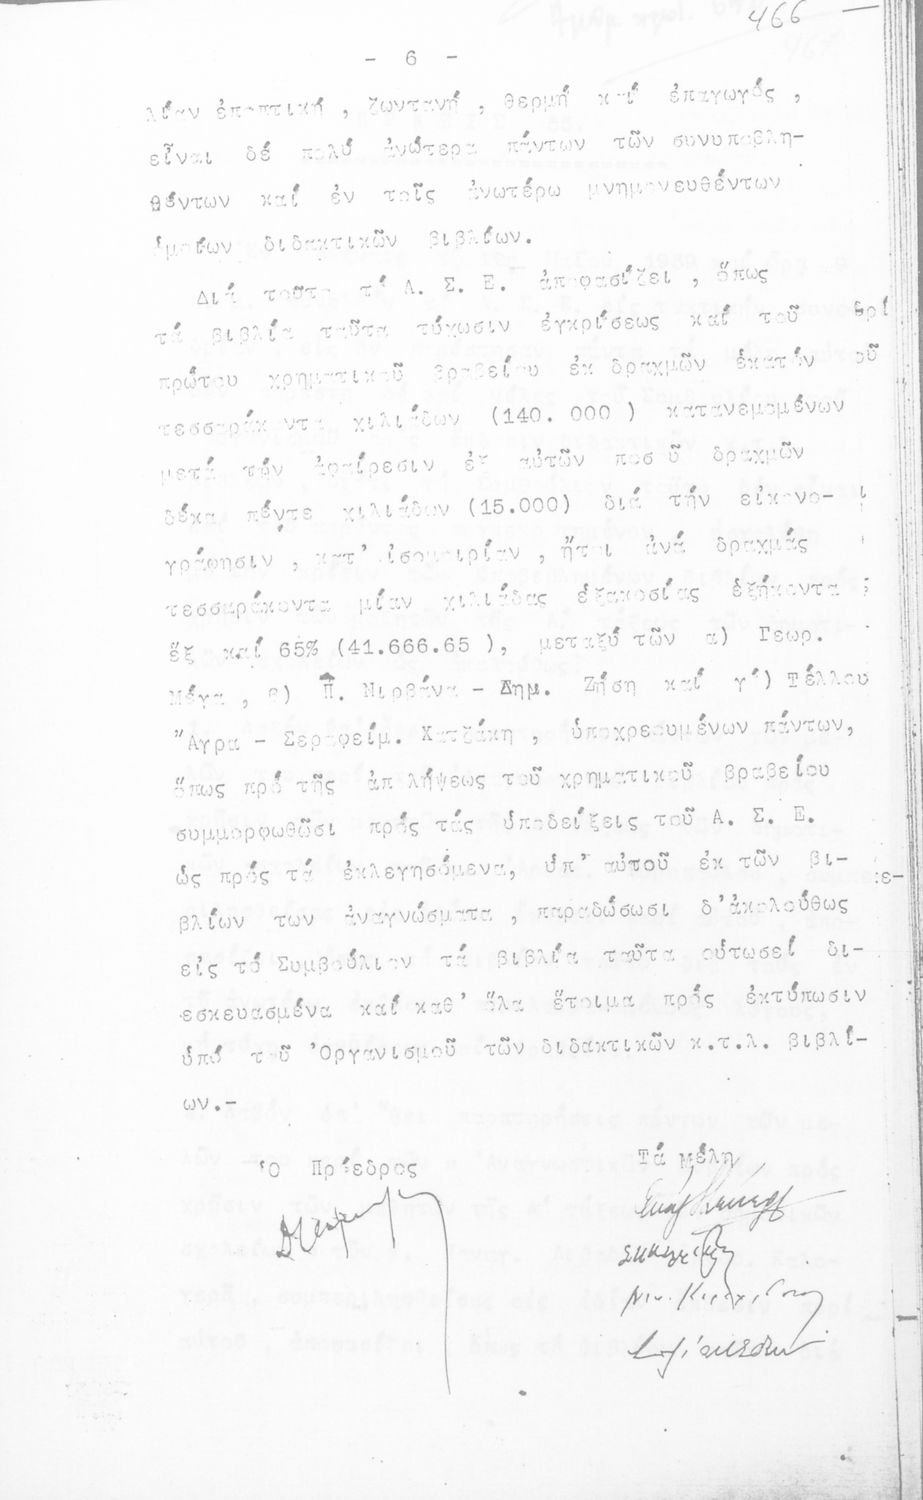 466
- 6 -
λίαν ἐποπτική , ζωντανή , θερμή καί ἐπαγωγός ,
εἶναι δέ πολύ ἀνώτερα πάντων τῶν συνυποβλη-
θέντων καί ἐν τοῖς ἀνωτέρω μνημονευθέντων
ὁμοίων διδακτικῶν βιβλίων.
Διά ταῦτα τό Α. Σ. Ε. ἀποφασίζει , ὅπως
τά βιβλία ταῦτα τύχωσιν ἐγκρίσεως καί τοῦ
πρώτου χρηματικοῦ βραβείου ἐκ δραχμῶν ἑκατόν
τεσσαράκοντα χιλιάδων (140.000 ) κατανεμομένων
μετά τήν ἀφαίρεσιν ἐξ αὐτῶν ποσοῦ δραχμῶν
δέκα πέντε χιλιάδων (15.000) διά τήν εἰκονο-
γράφησιν , κατ' ἰσομοιρίαν , ἤτοι ἀνά δραχμάς
τεσσαράκοντα μίαν χιλιάδας ἑξακοσίας ἑξήκοντα
ἕξ καί 65% (41.666.65 ), μεταξύ τῶν α) Γεωρ.
Μέγα , β) Π. Νιρβάνα - Δημ. Ζήση καί γ') Τέλλου
Ἄγρα - Σεραφείμ. Χατζάκη , ὑποχρεουμένων πάντων,
ὅπως πρό τῆς ἀπολήψεως τοῦ χρηματικοῦ βραβείου
συμμορφωθῶσι πρός τάς ὑποδείξεις τοῦ Α. Σ. Ε.
ὡς πρός τά ἐκλεγησόμενα, ὑπ' αὐτοῦ ἐκ τῶν βι-
βλίων των ἀναγνώσματα , παραδώσωσι δ' ἀκολούθως
εἰς τό Συμβούλιον τά βιβλία ταῦτα οὑτωσεί δι-
εσκευασμένα καί καθ' ὅλα ἕτοιμα πρός ἐκτύπωσιν
ὑπό τοῦ Ὀργανισμοῦ τῶν διδακτικῶν κ.τ.λ. βιβλί-
ων.-
Ὁ Πρόεδρος
Τά μέλη